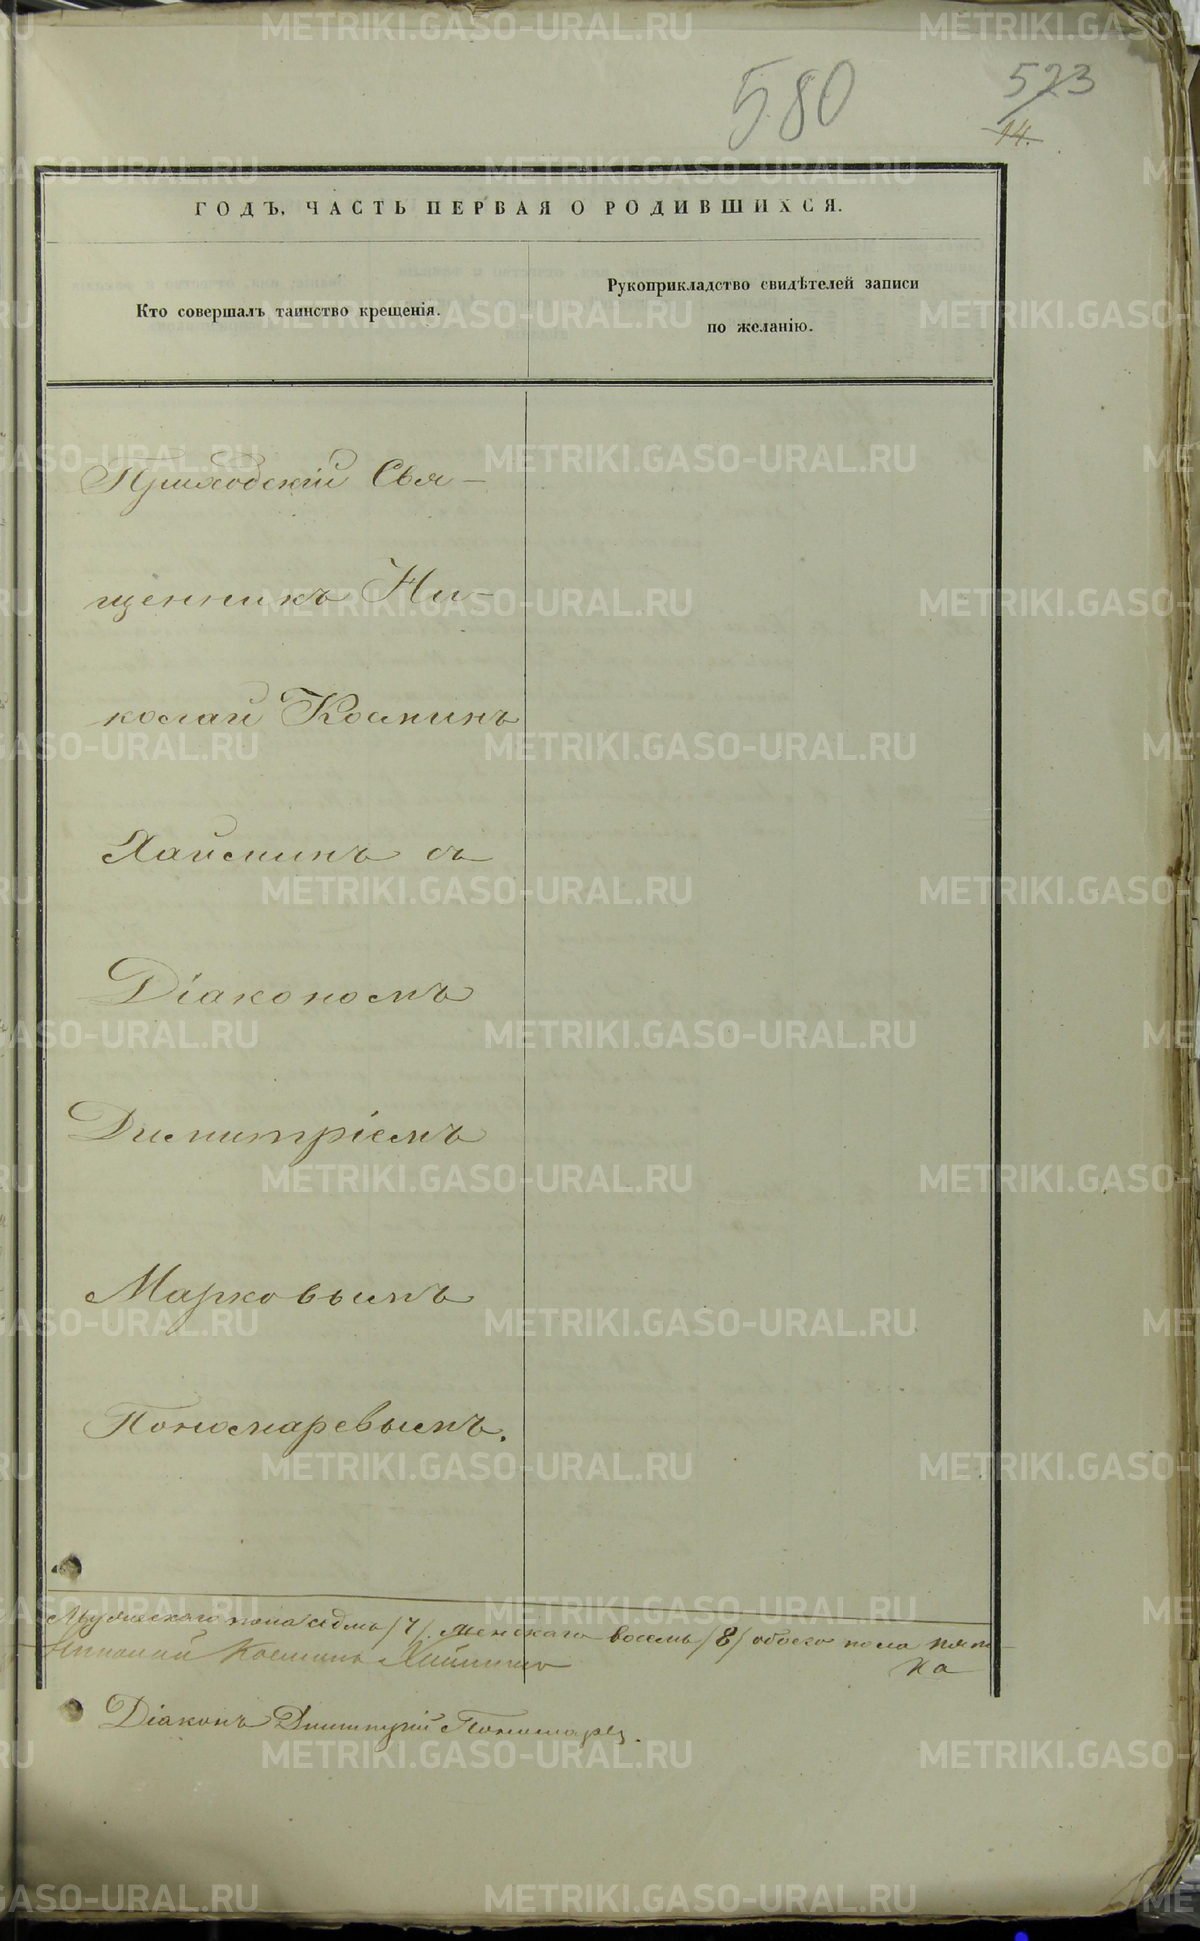 580
523
14.
ГОДЪ, ЧАСТЬ ПЕРВАЯ О РОДИВШИХСЯ.
Кто совершалъ таинство крещенія.
Рукоприкладство свидѣтелей записи
по желанію.
Приходскій Свя-
щенникъ Ни-
колай Косминъ
Хайминъ съ
Діакономъ
Димитріемъ
Марковымъ
Пономаревымъ.
Мужескаго пола седмь /7/. Женскаго восемь /8/ обоего пола пят-
на
Николай Косминъ Хайминъ
Діаконъ Димитрій Пономаревъ.
METRIKI.GASO-URAL.RU